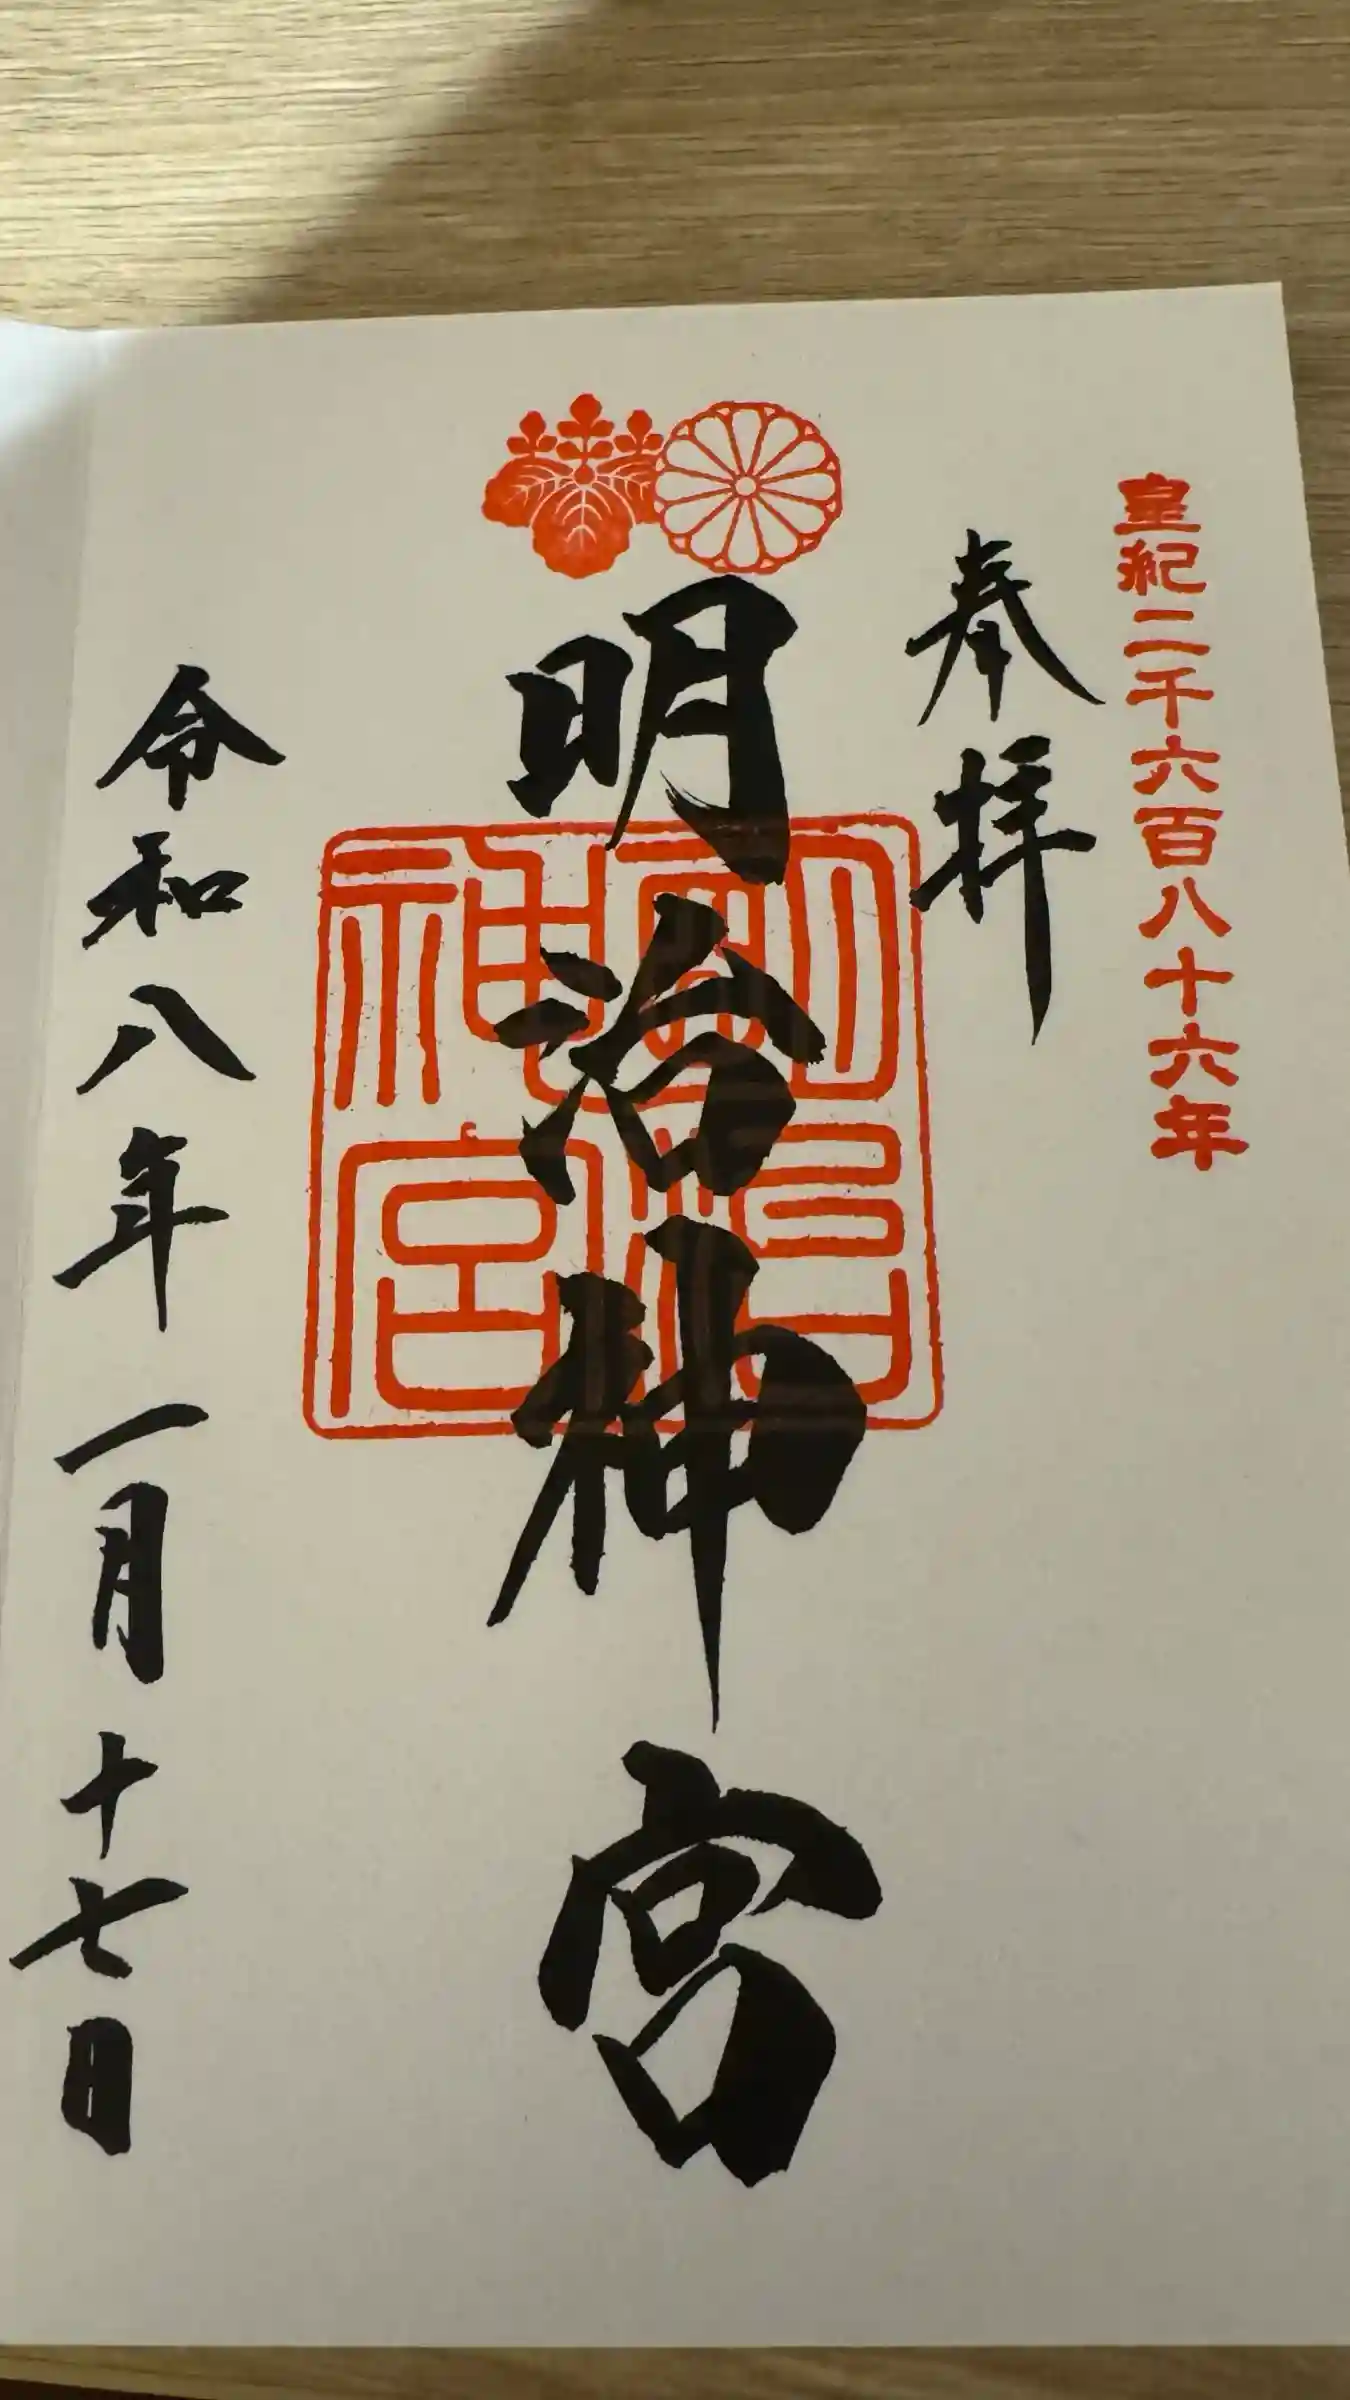 皇紀二千六百八十六年
奉拝
明治神宮
明治
神宮
令和八年一月十七日